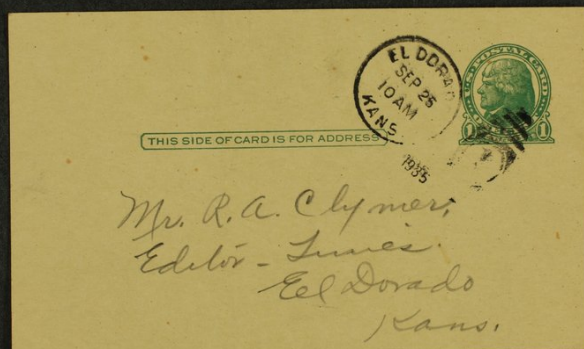 EL DORADO
SEP 25
10 AM
KANS.
1935
U.S. POSTAL CARD
1 1
THIS SIDE OF CARD IS FOR ADDRESS
Mr. R. A. Clymer,
Editor - Times.
El Dorado
Kans.